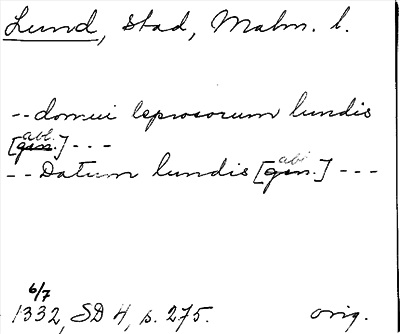 Lund, stad, Malm. l.
-- domui leprosorum lundis
[gen. abl.] - - -
-- Datum lundis [gen. abl.] - - -
6/7
1332, SD 4, s. 275. orig.